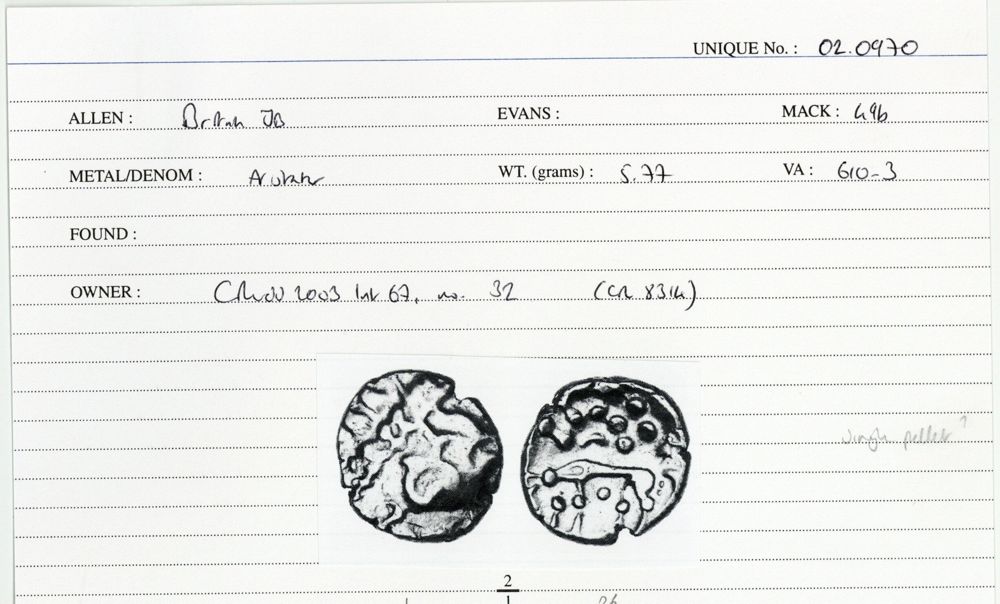 UNIQUE No. : 02.0970
ALLEN : British JB EVANS : MACK : 49b
METAL/DENOM : WT. (grams) : 5.77 VA : 610-3
FOUND :
OWNER : 2003 67, no. 32 (CR 8314)
pellet ?
2
1 26